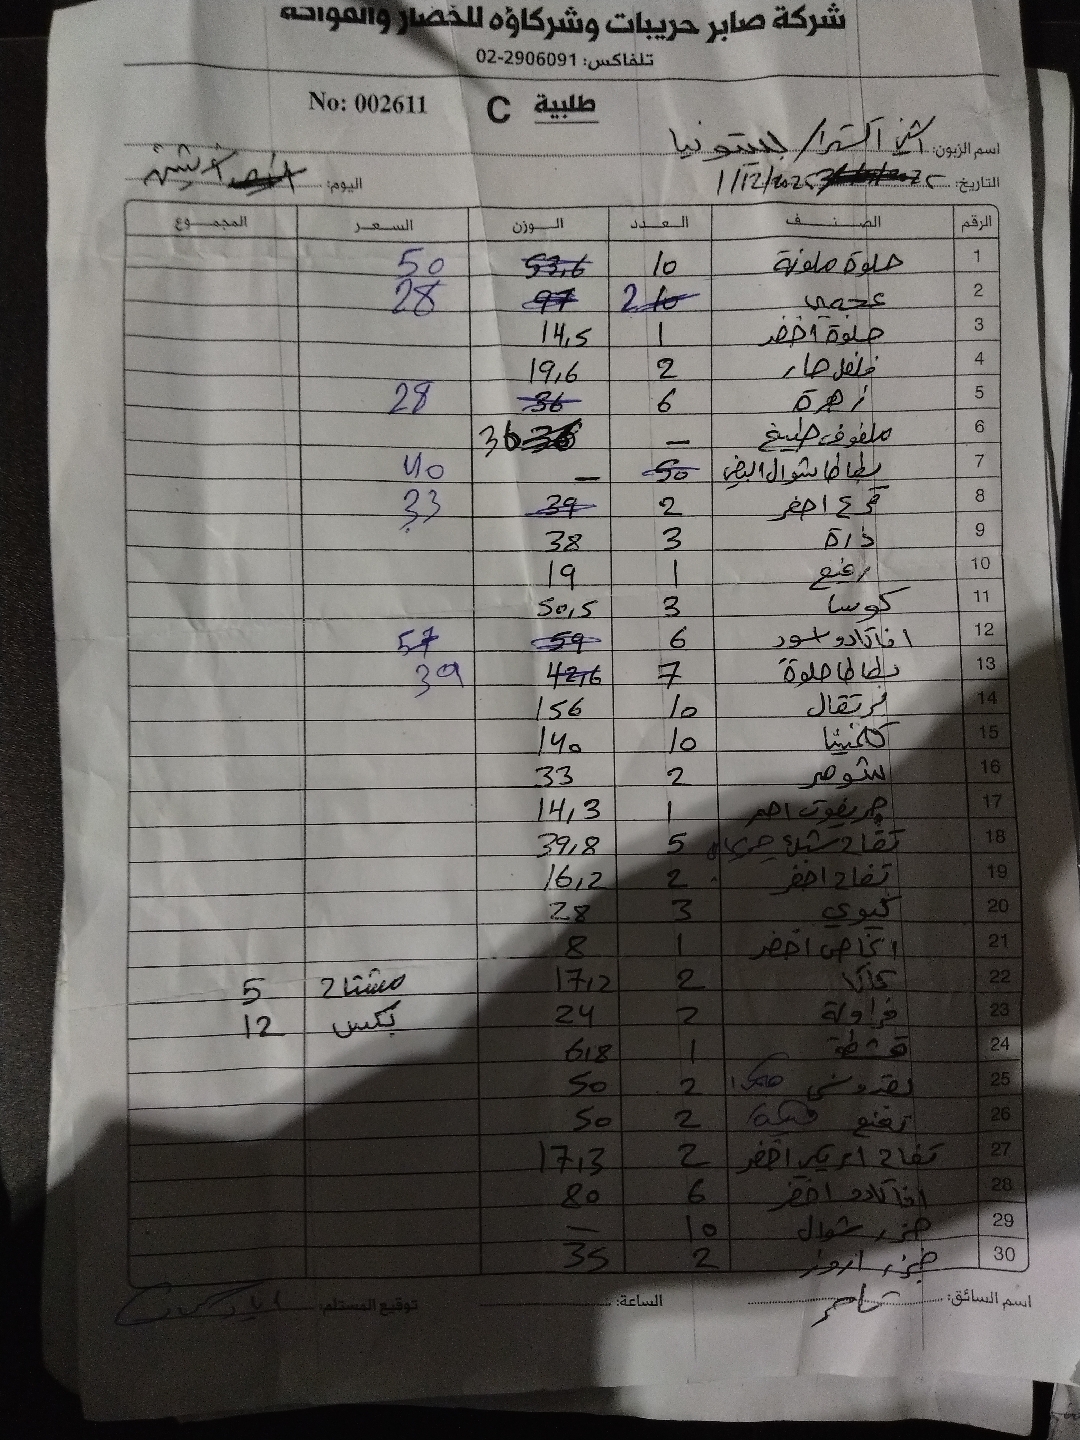 شركة صابر حريبات وشركاؤه للخضار والفواكه
تلفاكس: 02-2906091
طلبية C No: 002611
اسم الزبون:
التاريخ: 1/12/2025 اليوم:
الرقم الصنف العدد الوزن السعر المجموع
1 حلوة ملونة 10 53,6 50
2 عجمي 10 2 97 28
3 حلوة اخضر 1 14,5
4 فلفل حار 2 19,6
5 زهرة 6 36 28
6 ملفوف طبيخ - 36 36
7 بطاطا شوال ابيض 50 - 40
8 قرع اصفر 2 39 33
9 ذرة 3 38
10 رفيع 1 19
11 كوسا 3 50,5
12 افاكادو اسود 6 59 57
13 بطاطا حلوة 7 42,6 39
14 برتقال 10 156
15 كلمنتينا 10 140
16 شومر 2 33
17 جريفوت احمر 1 14,3
18 تفاح 5 39,8
19 تفاح اخضر 2 16,2
20 كيوي 3 28
21 انجاص اخضر 1 8
22 كاكا 2 17,2 مشتاح 5
23 فراولة 2 24 بكس 12
24 قشطة 1 6,8
25 بقدونس 2 50
26 نعنع 2 50
27 تفاح اخضر 2 17,3
28 افاكادو اخضر 6 80
29 جزر شوال 10 -
30 جزر 2 35
اسم السائق: الساعة: توقيع المستلم: